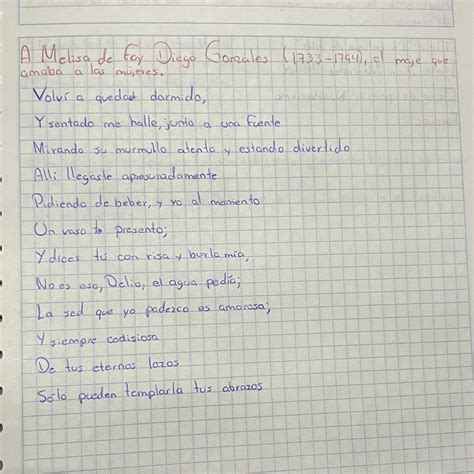 A Melisa de Fay Diego Gonzales (1733-1794), el moje que
amaba a las mujeres.
Volví a quedar dormido,
Y sentado me halle, junto a una fuente
Mirando su murmullo atento y estando divertido
Allí llegaste apresuradamente
Pidiendo de beber, y yo al momento
Un vaso te presento;
Y dices tú con risa y burla mía,
No es eso, Delio, el agua pedía;
La sed que yo padezco es amorosa;
Y siempre codisiosa
De tus eternos lazos
Sólo pueden templarla tus abrazos